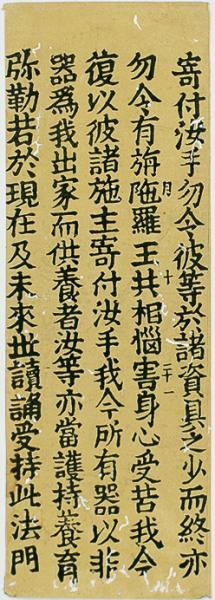 寄付汝手勿令彼等於諸資具乏少而終亦
勿令有旃陁羅王共相惱害身心受苦我今
復以彼諸施主寄付汝手我今所有器以非
器爲我出家而供養者汝等亦當護持養育
弥勒若於現在及未來世讀誦受持此法門